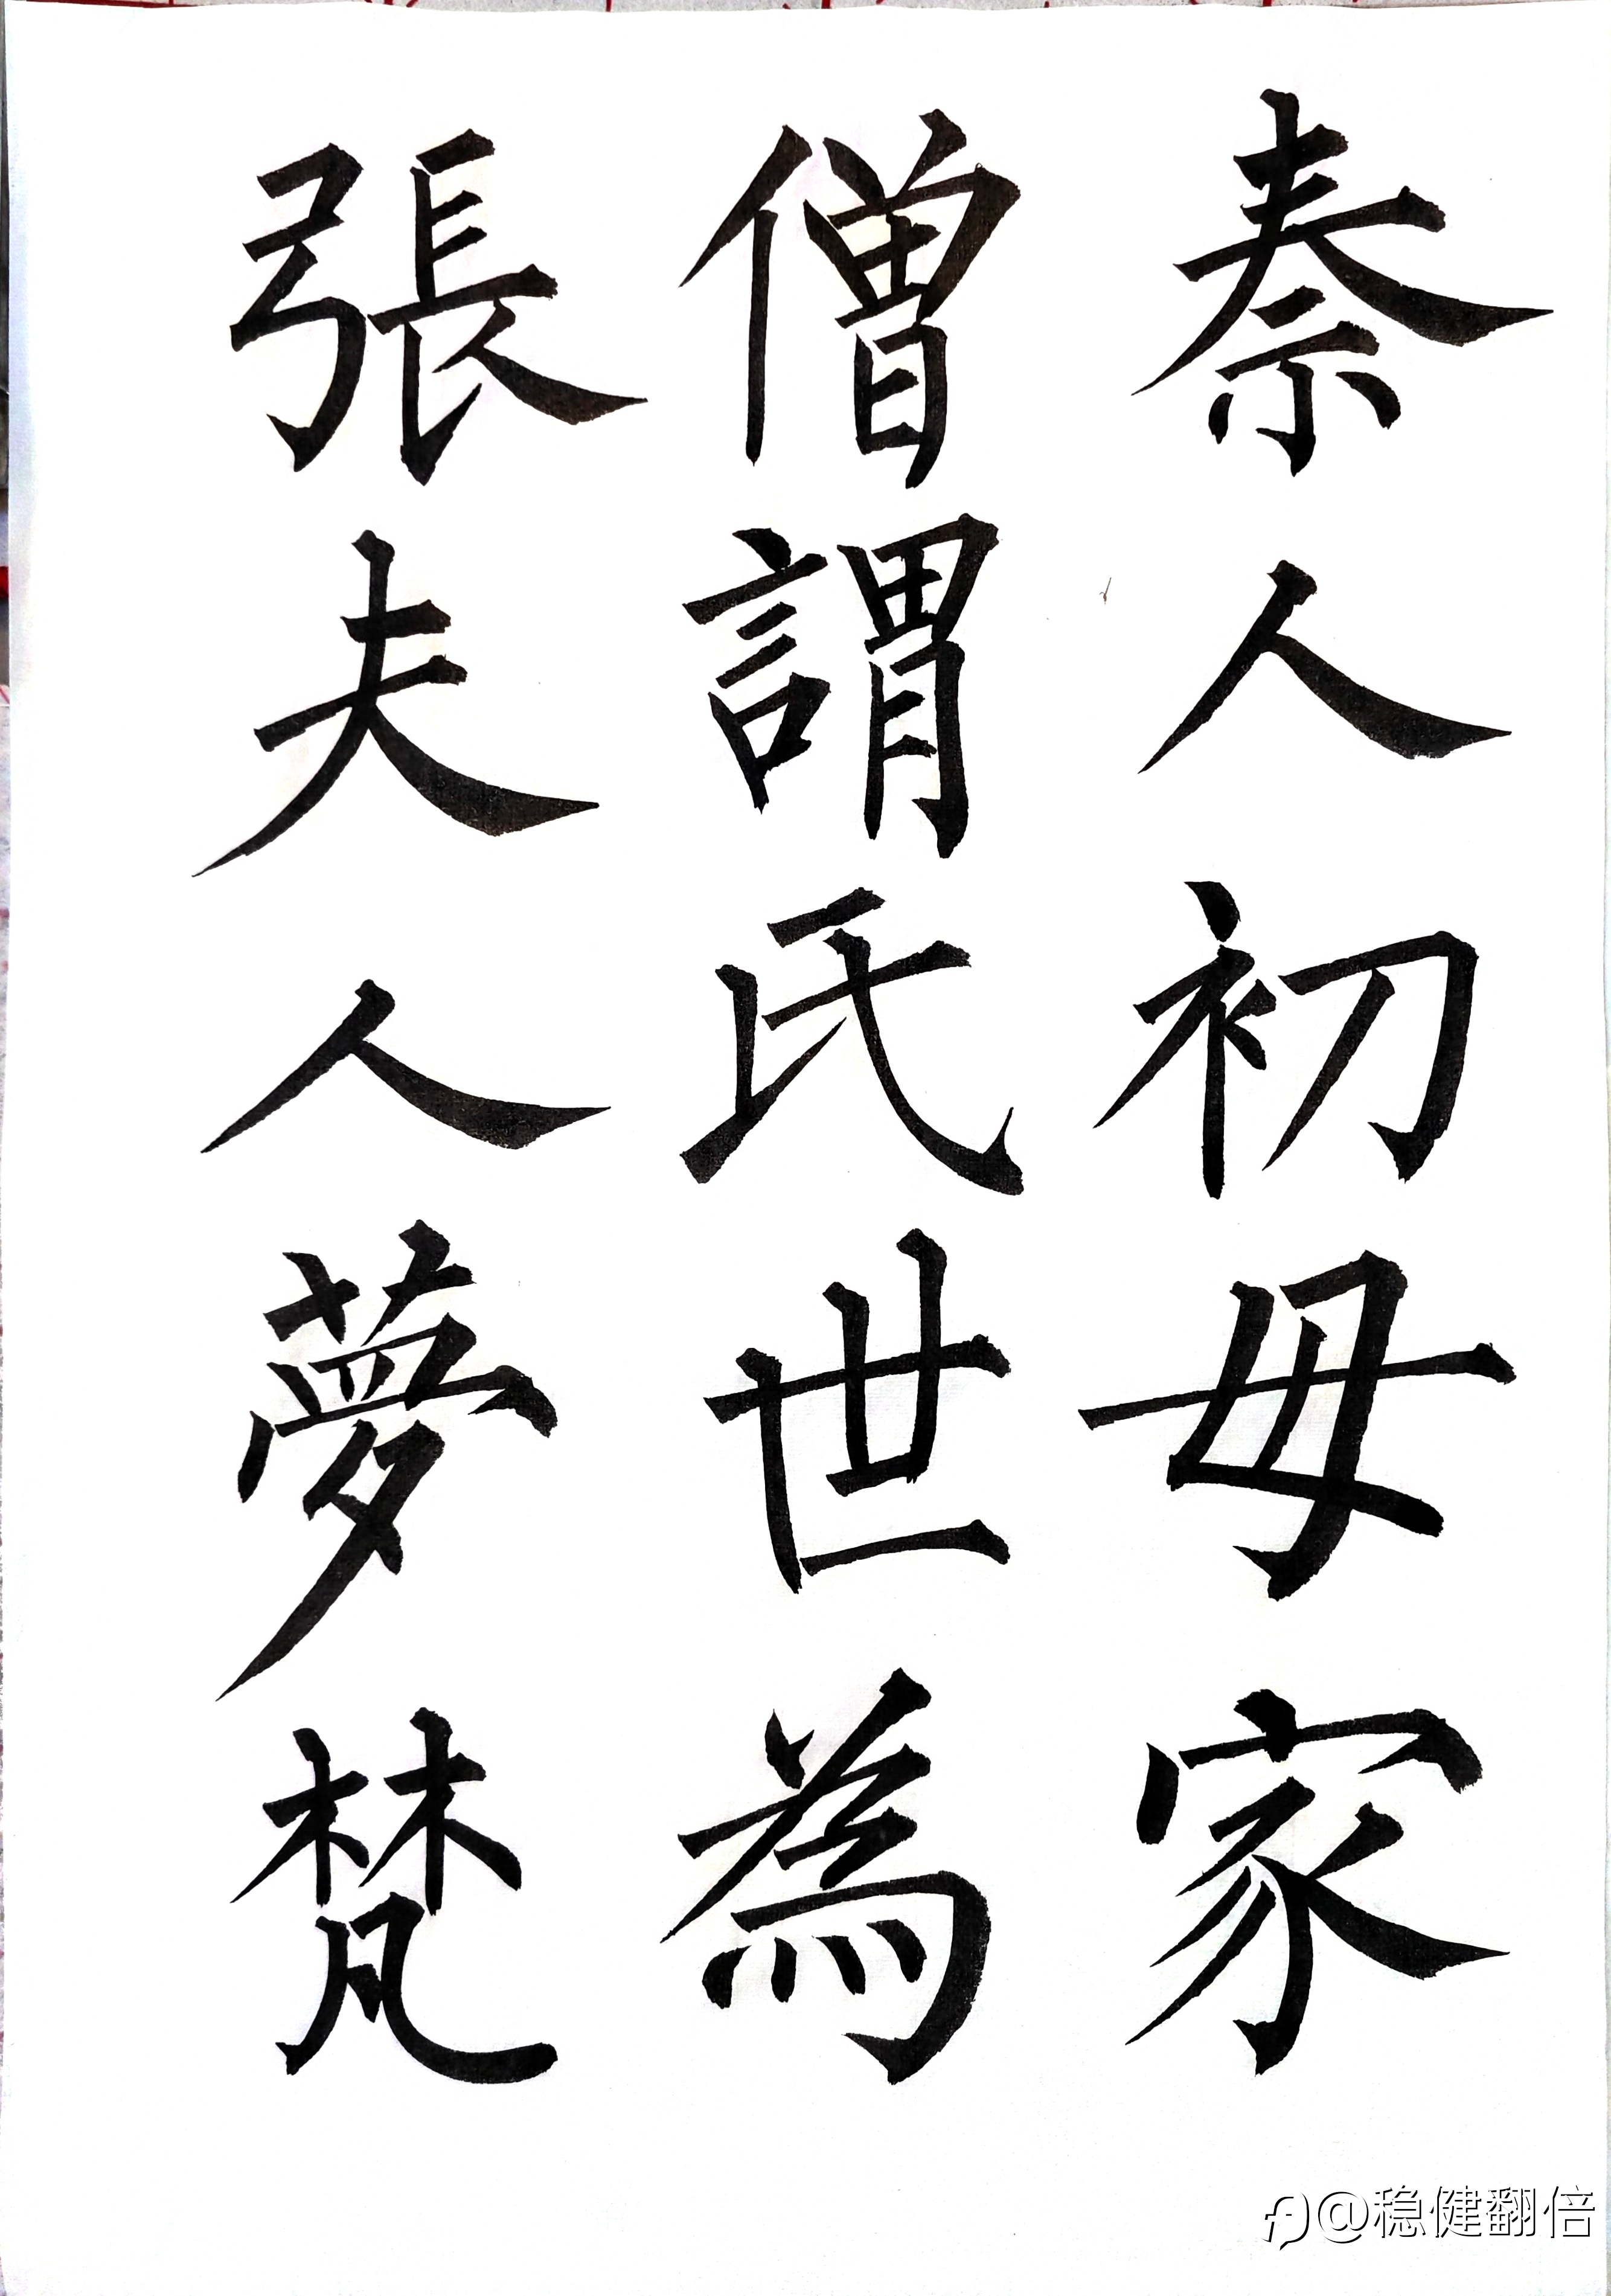 秦人初母家
僧謂氏世為
張夫人夢梵
@稳健翻倍